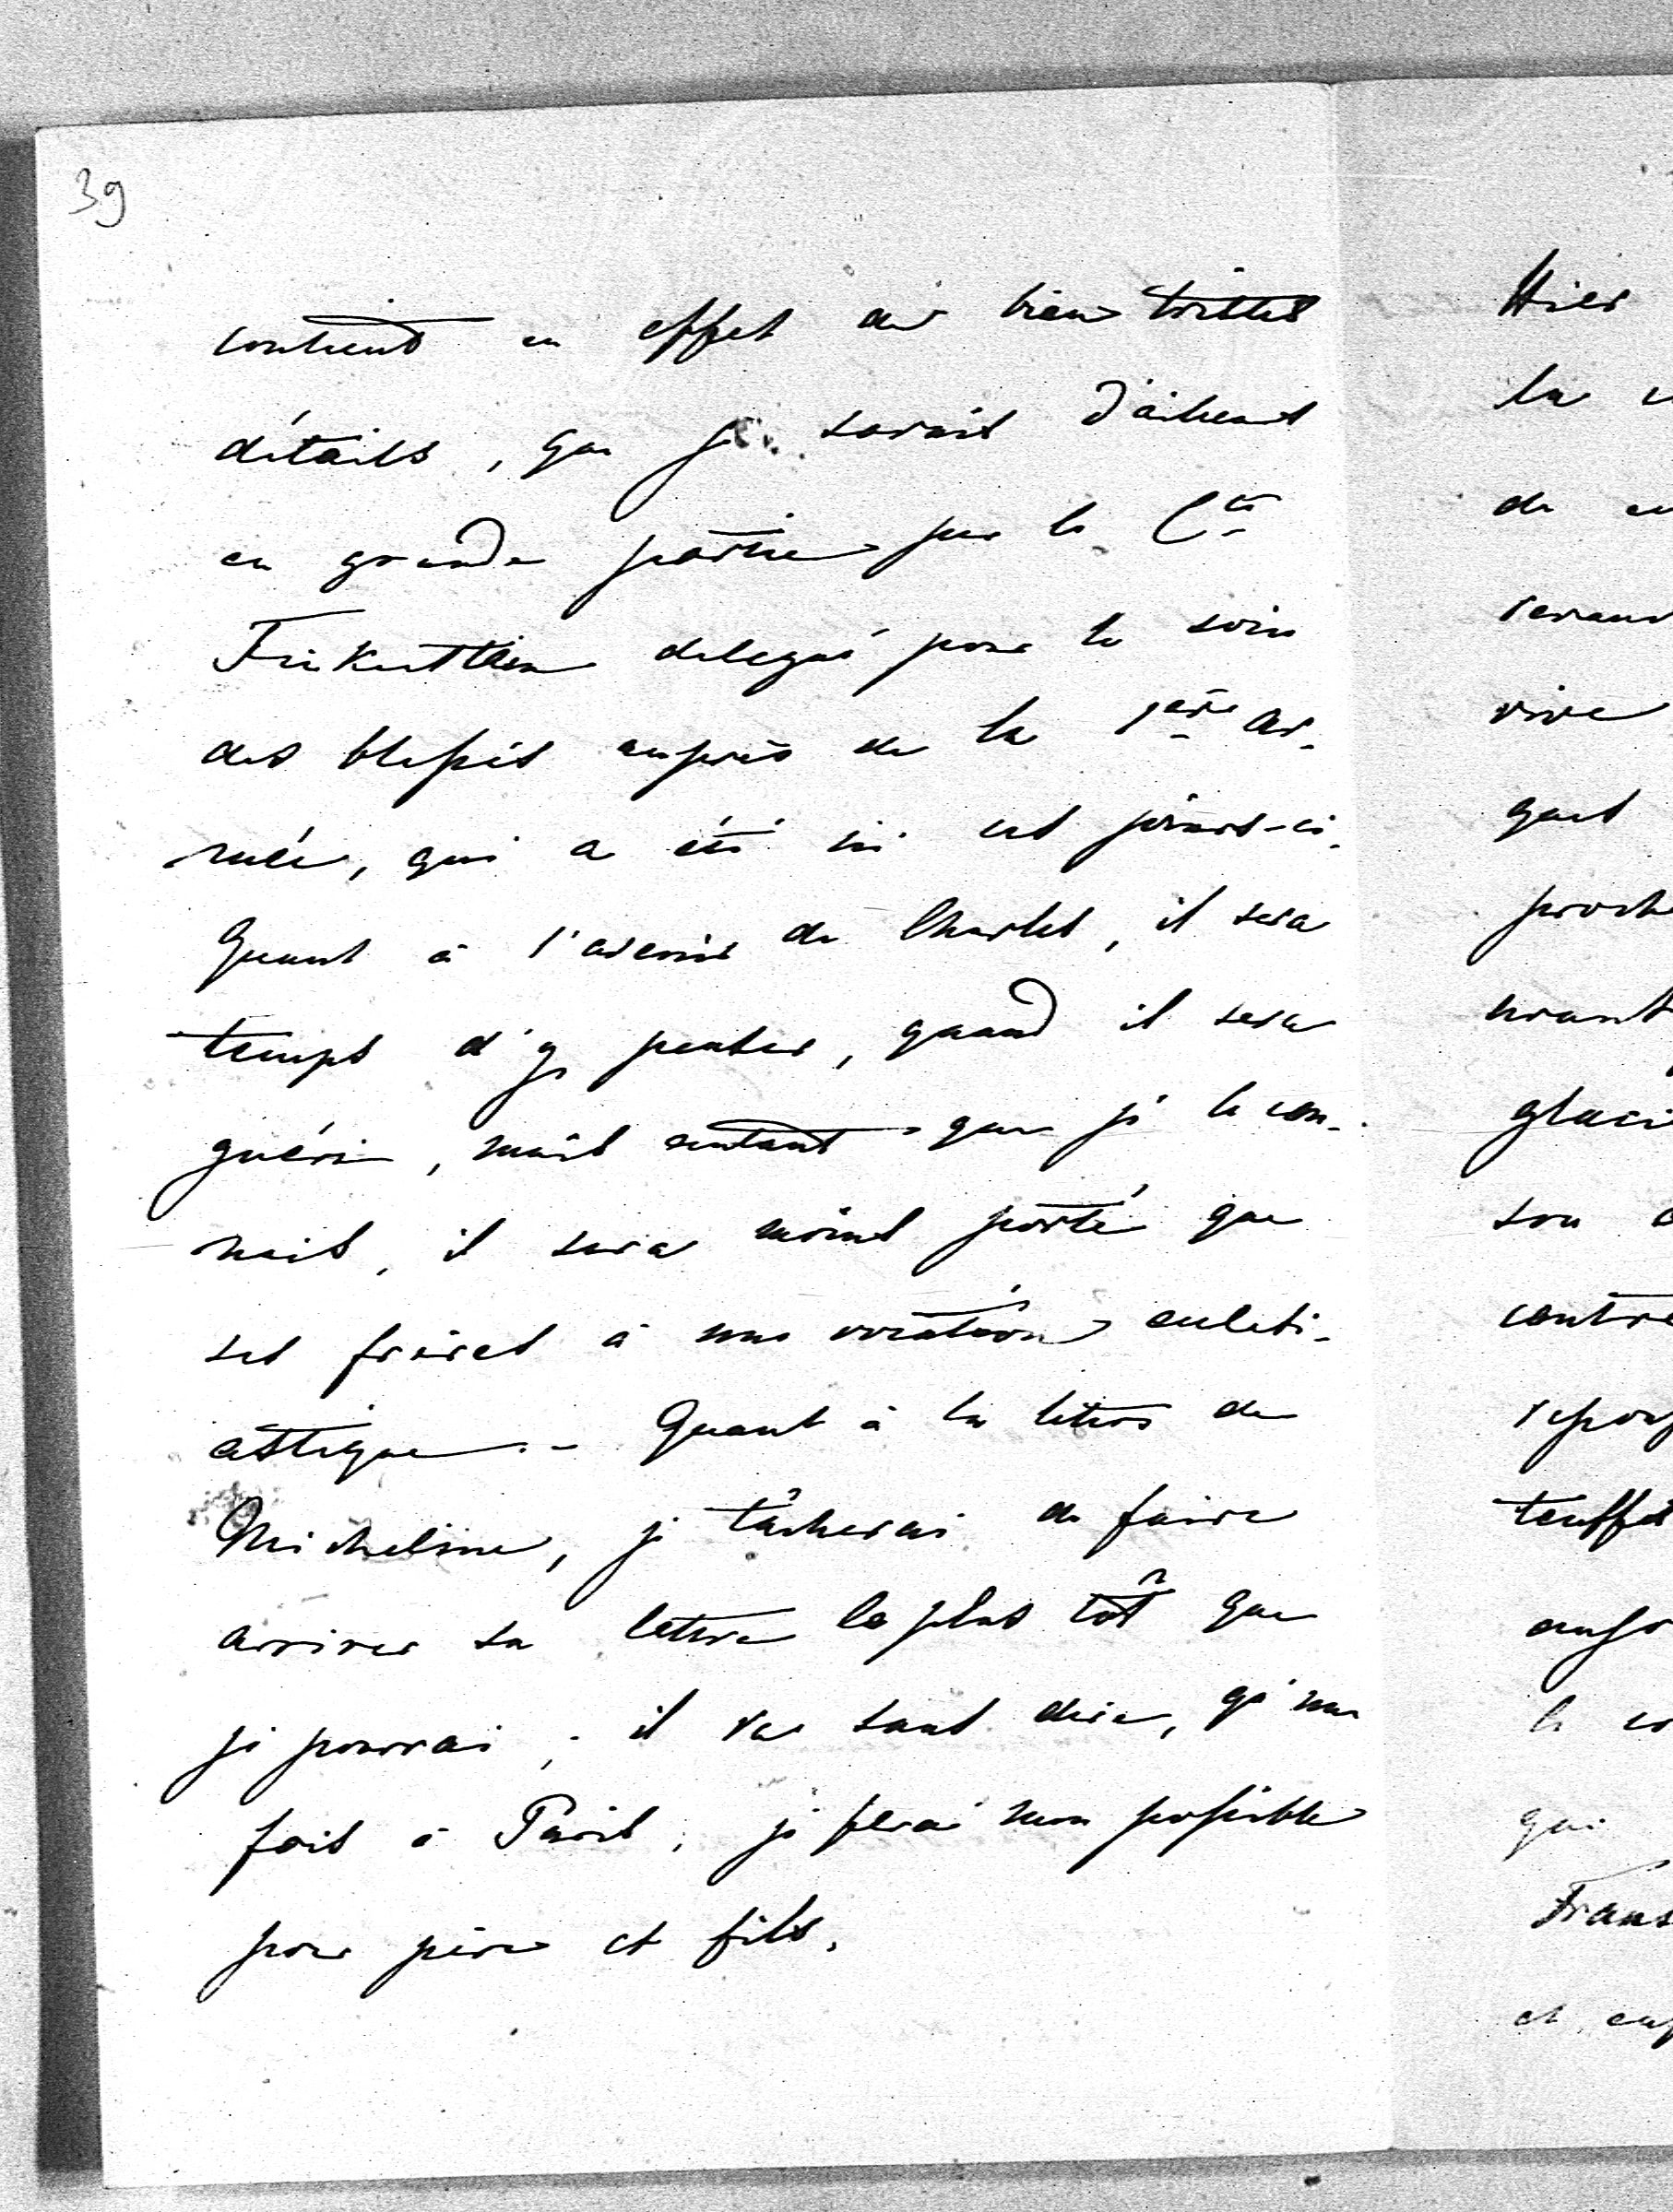 39
contient en effet de bien tristes
détails, que je savais d'ailleurs
en grande partie par le Cte
delegué pour le soin
des blessés auprès de la 1ère ar-
mée, qui a été ici ces jours-ci.
Quant à l'avenir de Charles, il sera
temps d'y penser, quand il sera
guéri, mais autant que je le con-
nais, il sera moins porté que
ses frères à une vocation eclesi-
astique. - Quant à la lettre de
Micheline, je tâcherai de faire
arriver sa lettre le plus tôt que
je pourrai; il va sans dire, qu'une
fois à Paris, je ferai mon possible
pour père et fils.
Hier
la
de
vive
contre
qui
et